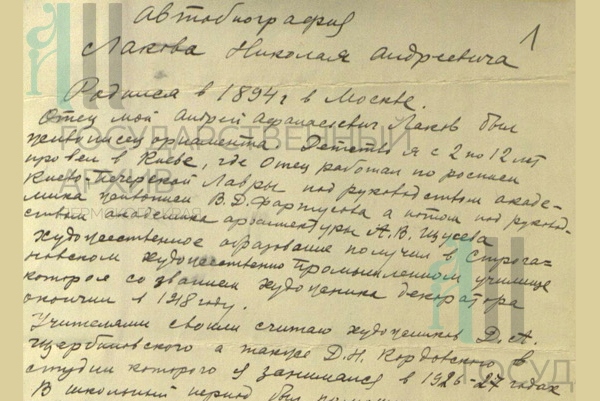 Автобиография
1
Лакова Николая Андреевича
Родился в 1894 г в Москве.
Отец мой Андрей Афанасьевич Лаков был
живописец орнамента. Детство я с 2 по 12 лет
провел в Киеве, где отец работал по росписи
Киево-Печерской Лавры под руководством акаде-
мика живописи В.Д. Фартусова а потом под руковод-
ством академика архитектуры А.В. Щусева
Художественное образование получил в Строга-
новском художественно промышленном училище
которое со званием художника декоратора
окончил в 1918 году.
Учителями своими считаю художников Д.А.
Щербиновского а также Д.Н. Кардовского в
студии которого я занимался в 1926-27 годах
В школьный период был
ГОСУДАРСТВЕННЫЙ
АРХИВ
ГОСУД